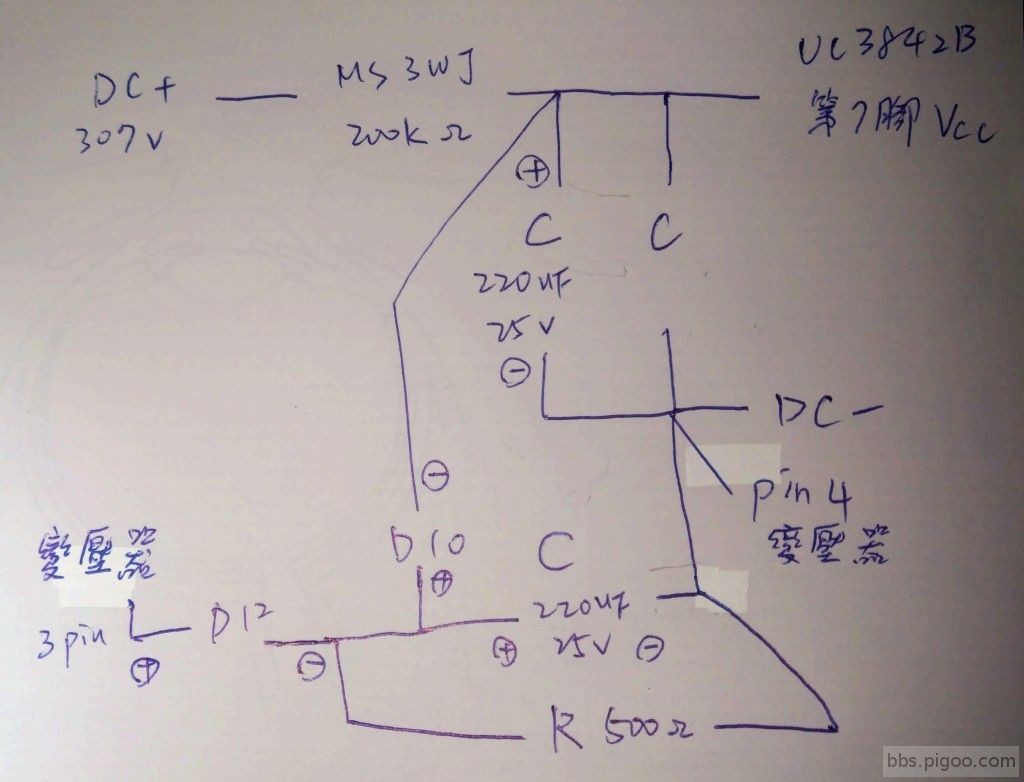 UC3842B
第7腳 Vcc
DC+
307V
MS 3WJ
200kΩ
⊕
C
220uF
25V
⊖
C
DC-
pin 4
變壓器
⊖
D10
⊕
C
220uF
25V
⊕
⊖
變壓器
3 pin
⊕
D12
⊖
R 500Ω
bbs.pigoo.com